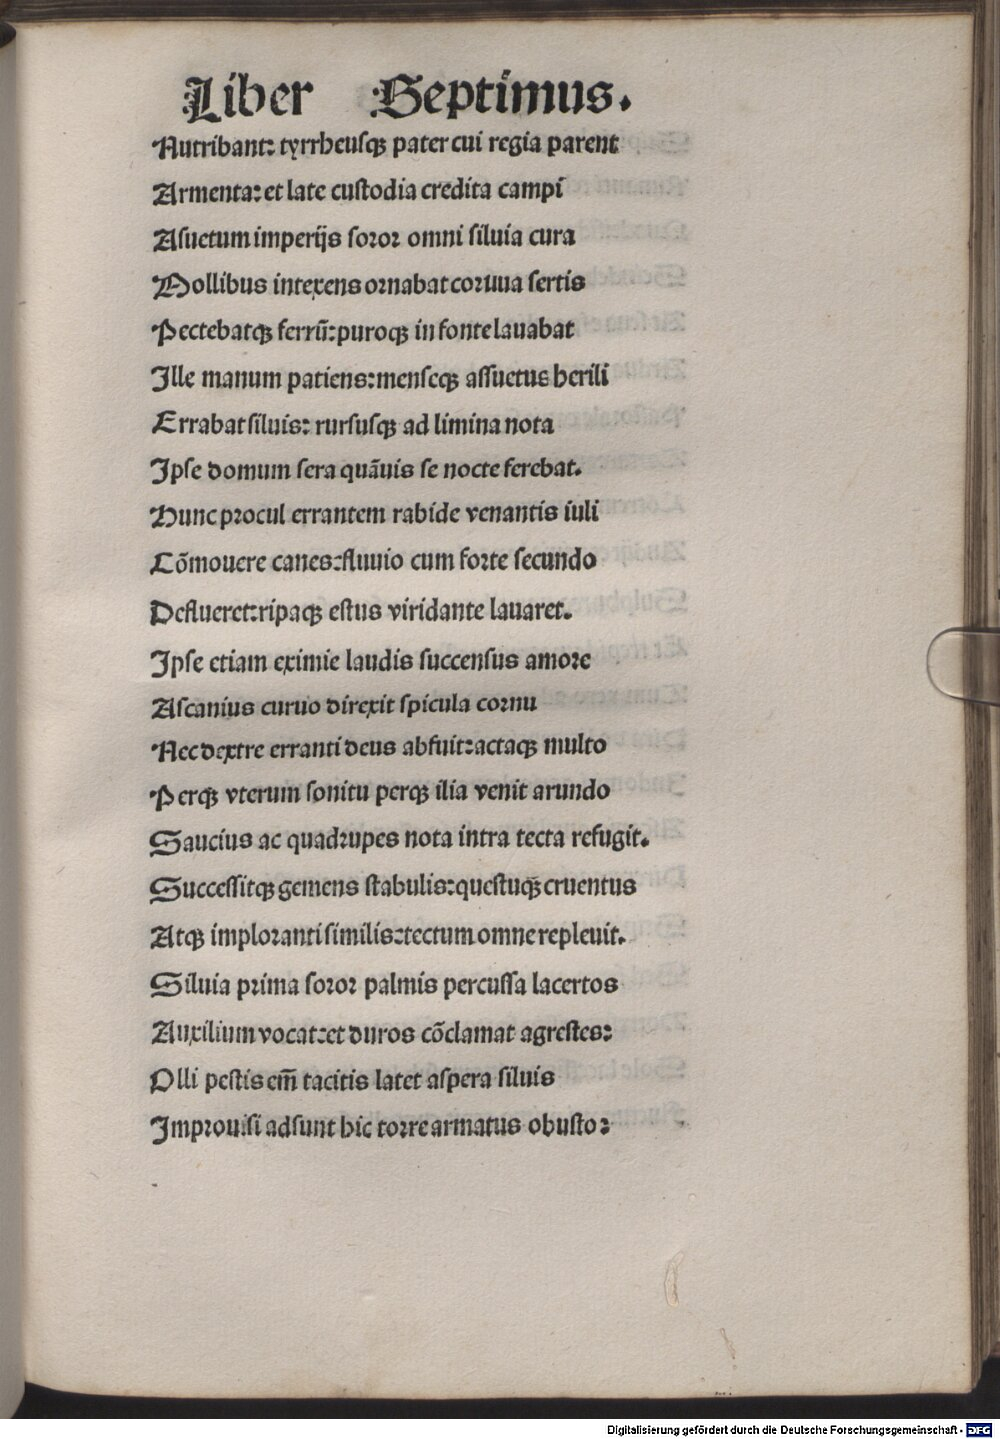 Liber Septimus.
Nutribant: tyrrheusqȝ pater cui regia parent
Armenta: et late custodia credita campi
Asuetum imperijs soror omni siluia cura
Mollibus intexens ornabat coruua sertis
Pectebatqȝ ferrū: puroqȝ in fonte lauabat
Ille manum patiens: menseqȝ assuetus herili
Errabat siluis: rursusqȝ ad limina nota
Ipse domum sera quāuis se nocte ferebat.
Hunc procul errantem rabide venantis iuli
Cōmouere canes: fluuio cum forte secundo
Deflueret: ripaqȝ estus viridante lauaret.
Ipse etiam eximie laudis succensus amore
Ascanius curuo direxit spicula cornu
Nec dextre erranti deus abfuit: actaqȝ multo
Perqȝ vterum sonitu perqȝ ilia venit arundo
Saucius ac quadrupes nota intra tecta refugit.
Successitqȝ gemens stabulis: questuqȝ cruentus
Atqȝ imploranti similis: tectum omne repleuit.
Siluia prima soror palmis percussa lacertos
Auxilium vocat: et duros cōclamat agrestes:
Olli pestis em̄ tacitis latet aspera siluis
Improuisi adsunt hic torre armatus obusto:
Digitalisierung gefördert durch die Deutsche Forschungsgemeinschaft - DFG